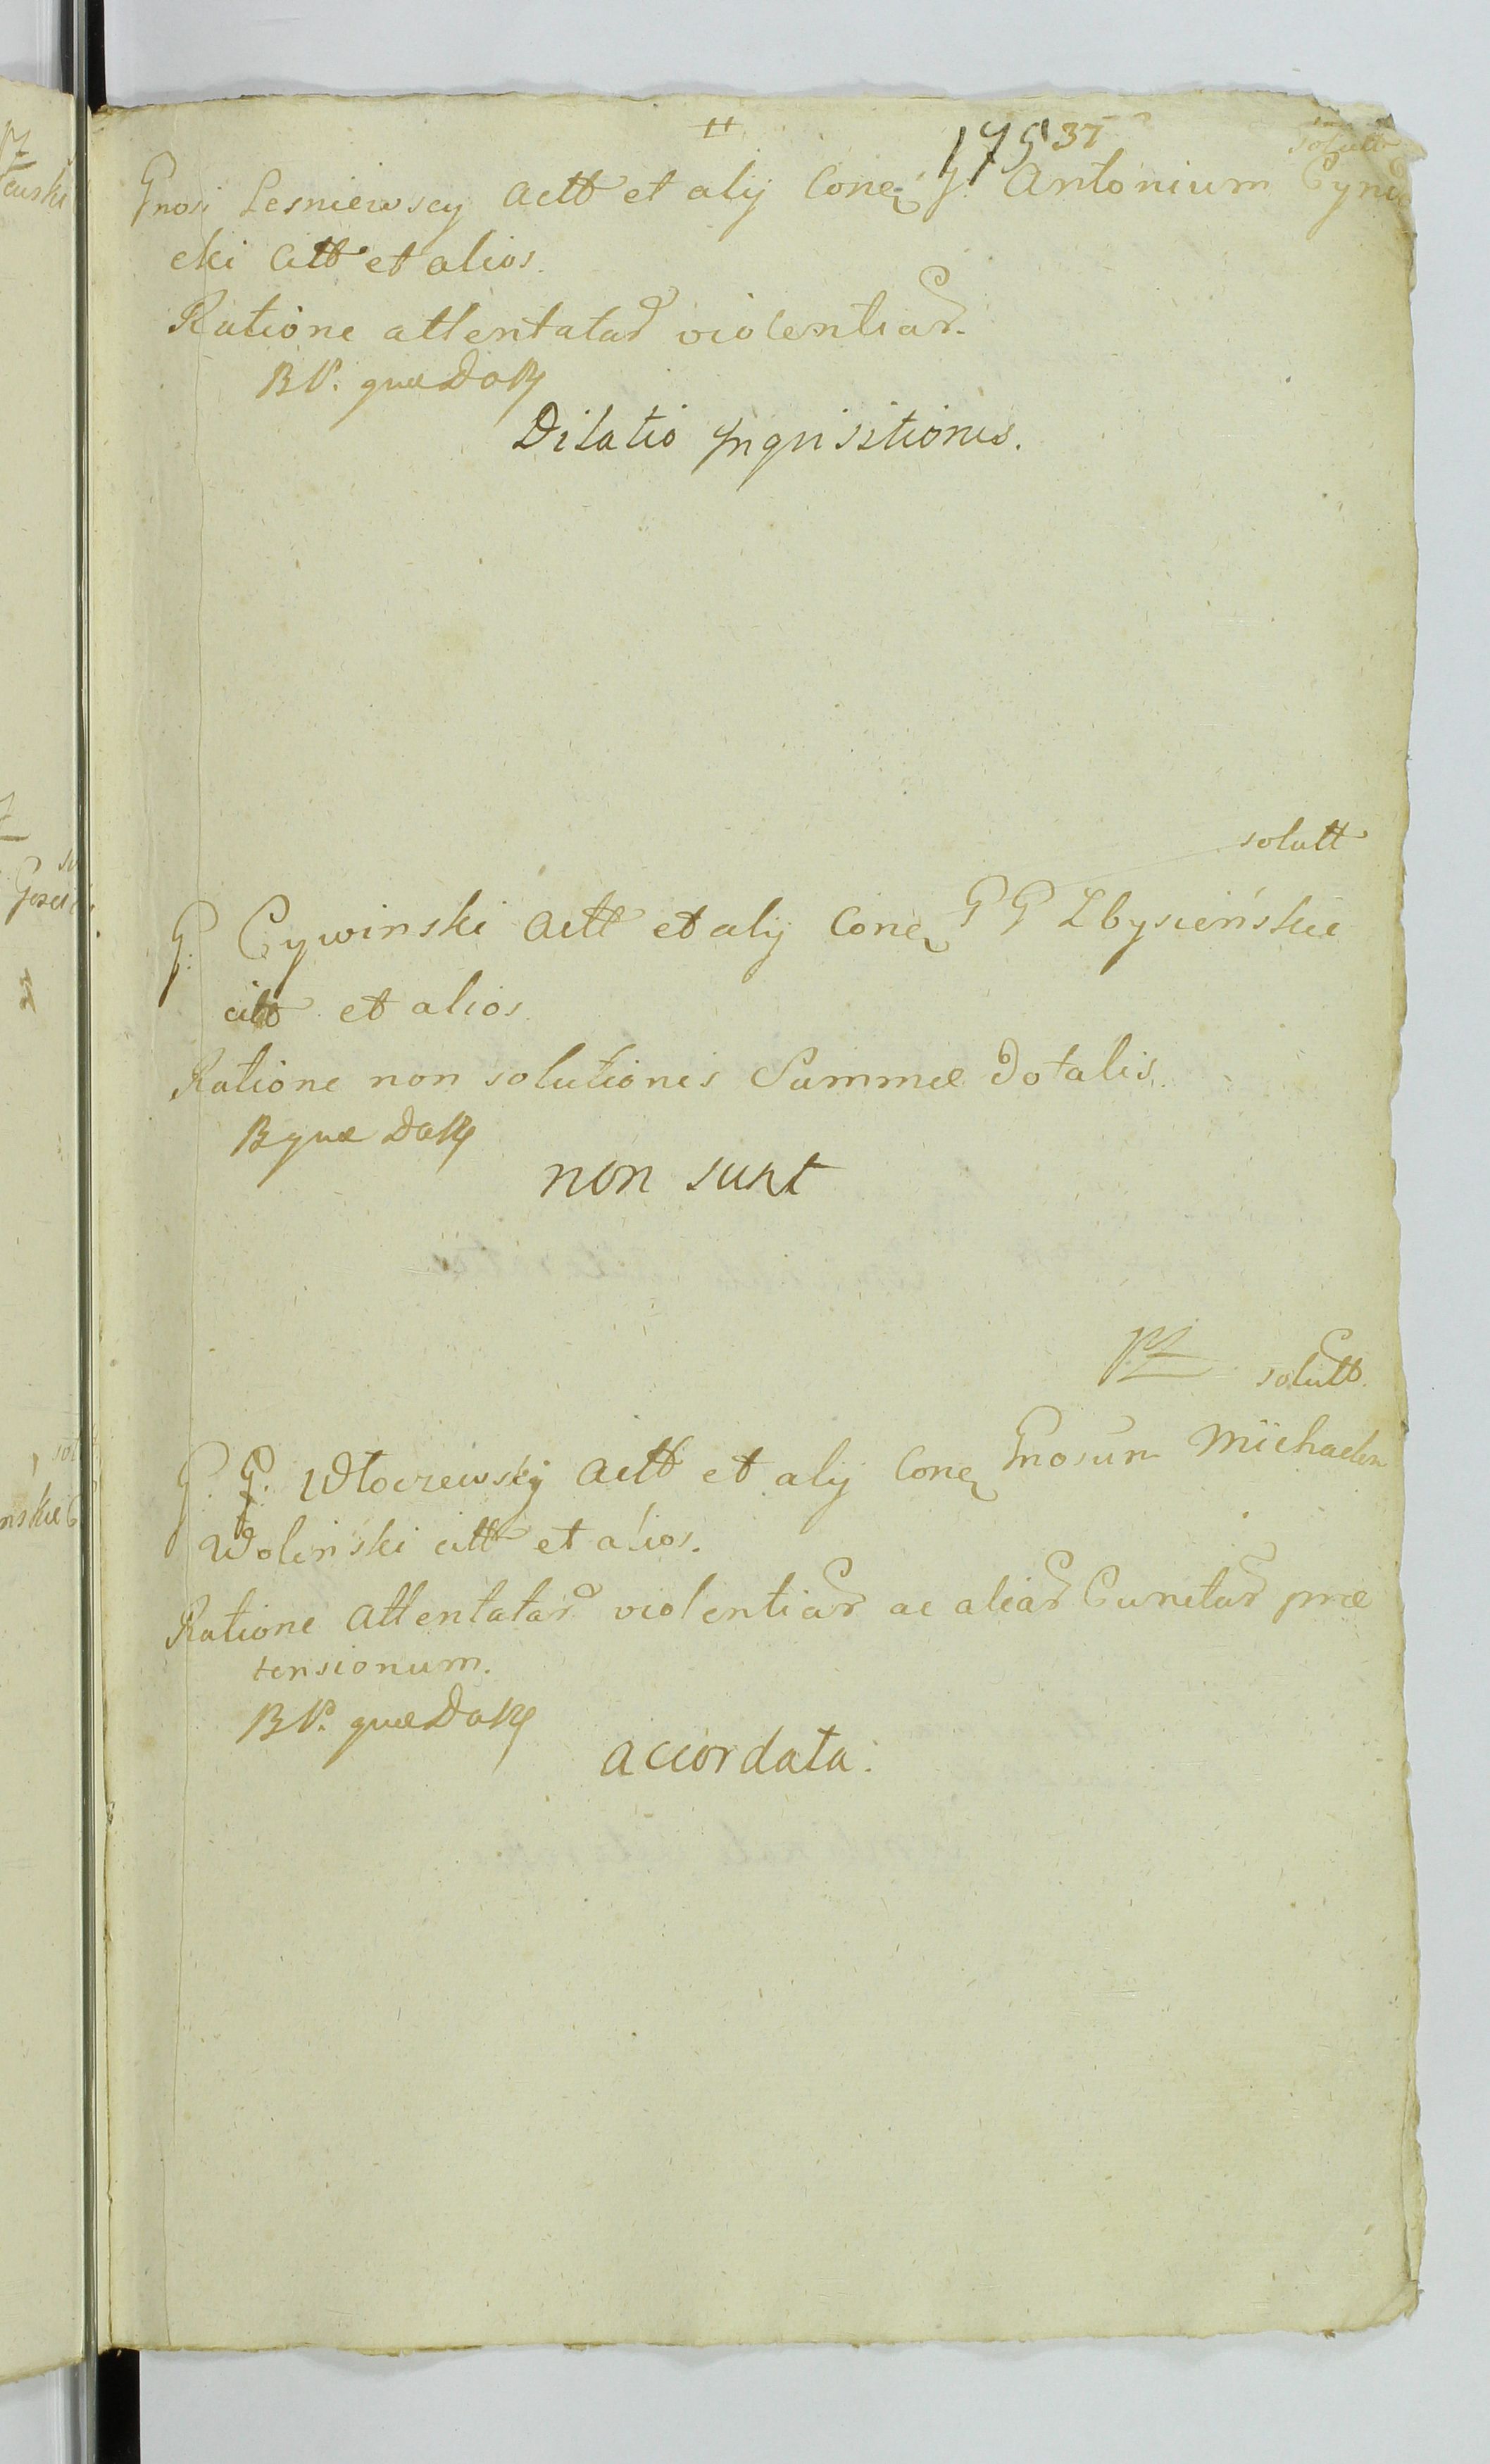 175 37
solutt
Gnosi Lesniewscy Actt et alij Conq G. Antonium
cki Citt et alios.
Ratione attentatar violentiar.
BP. quæ DoRg
Dilatio Jnquisitionis.
solutt
G. Cywinski Actt et alij Conq G G Zbysieńskie
citt et alios.
Ratione non solutionis Summæ Dotalis.
B quæ DoRg
non sunt
solutt
G. G. Włoczewsky Actt et alij Conq Gnosum Michaelem
Wolinski citt et alios.
Ratione Attentatar violentiar ac aliar Cunctar præ
tensionum.
BP. quæ DoRg
accordata.